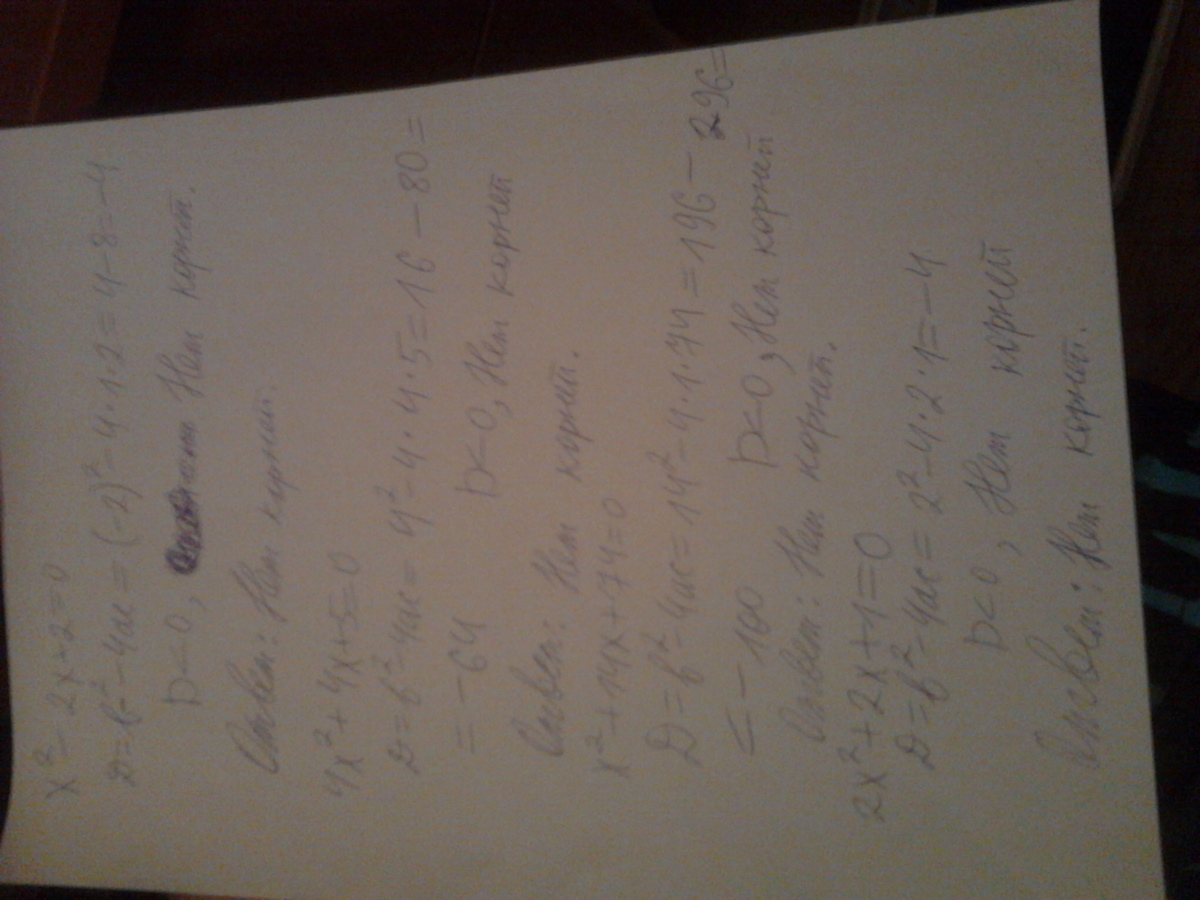 x² - 2x + 2 = 0
D = b² - 4ac = (-2)² - 4 · 1 · 2 = 4 - 8 = -4
D < 0, Нет корней.
Ответ: Нет корней.
4x² + 4x + 5 = 0
D = b² - 4ac = 4² - 4 · 4 · 5 = 16 - 80 =
= -64 D < 0, Нет корней
Ответ: Нет корней.
x² + 14x + 74 = 0
D = b² - 4ac = 14² - 4 · 1 · 74 = 196 - 296 =
= -100 D < 0, Нет корней
Ответ: Нет корней.
2x² + 2x + 1 = 0
D = b² - 4ac = 2² - 4 · 2 · 1 = -4
D < 0, Нет корней
Ответ: Нет корней.